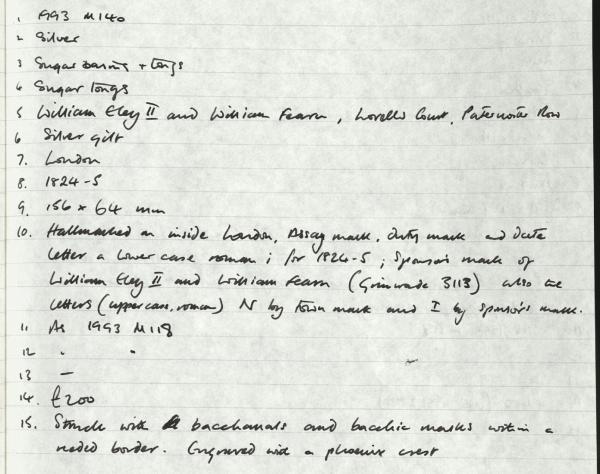 1 1993 M140
2 Silver
3 Sugar basins + tongs
4 Sugar tongs
5 William Eley II and William Fearn, Lovell's Court, Paternoster Row
6 Silver gilt
7. London
8. 1824-5
9. 156 x 64 mm
10. Hallmarked on inside London, Assay mark, duty mark and date
letter a lower case roman i for 1824-5; Sponsor's mark of
William Eley II and William Fearn (Grimwade 3113) also the
letters (uppercase, roman) N by town mark and I by sponsor's mark.
11 As 1993 M118
12 " "
13 —
14. £200
15. Struck with bacchanals and bacchic masks within a
reeded border. Engraved with a phoenix crest